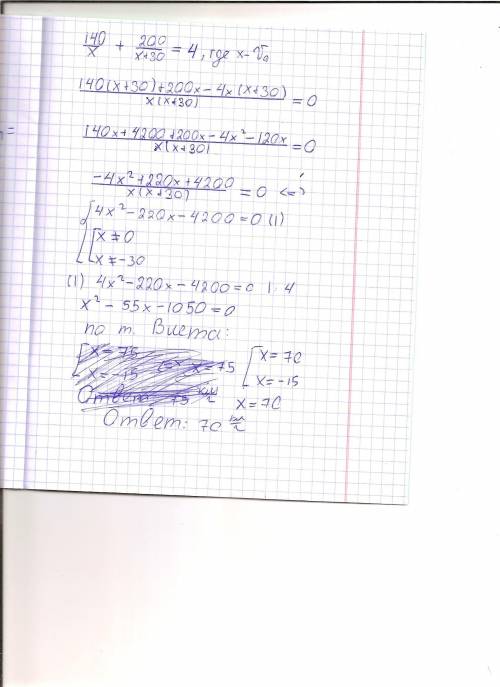 140/x + 200/(x+30) = 4, где x - V₀
(140(x+30)+200x-4x(x+30))/(x(x+30)) = 0
(140x+4200+200x-4x²-120x)/(x(x+30)) = 0
(-4x²+220x+4200)/(x(x+30)) = 0 <=>
{ 4x²-220x-4200=0 (1)
[ x≠0
x≠-30
(1) 4x²-220x-4200=0 |:4
x²-55x-1050=0
по т. Виета:
[ x=75 <=> x=75 [ x=70
x=-15 x=-15
Ответ: 75 км/ч x=70
Ответ: 70 км/ч